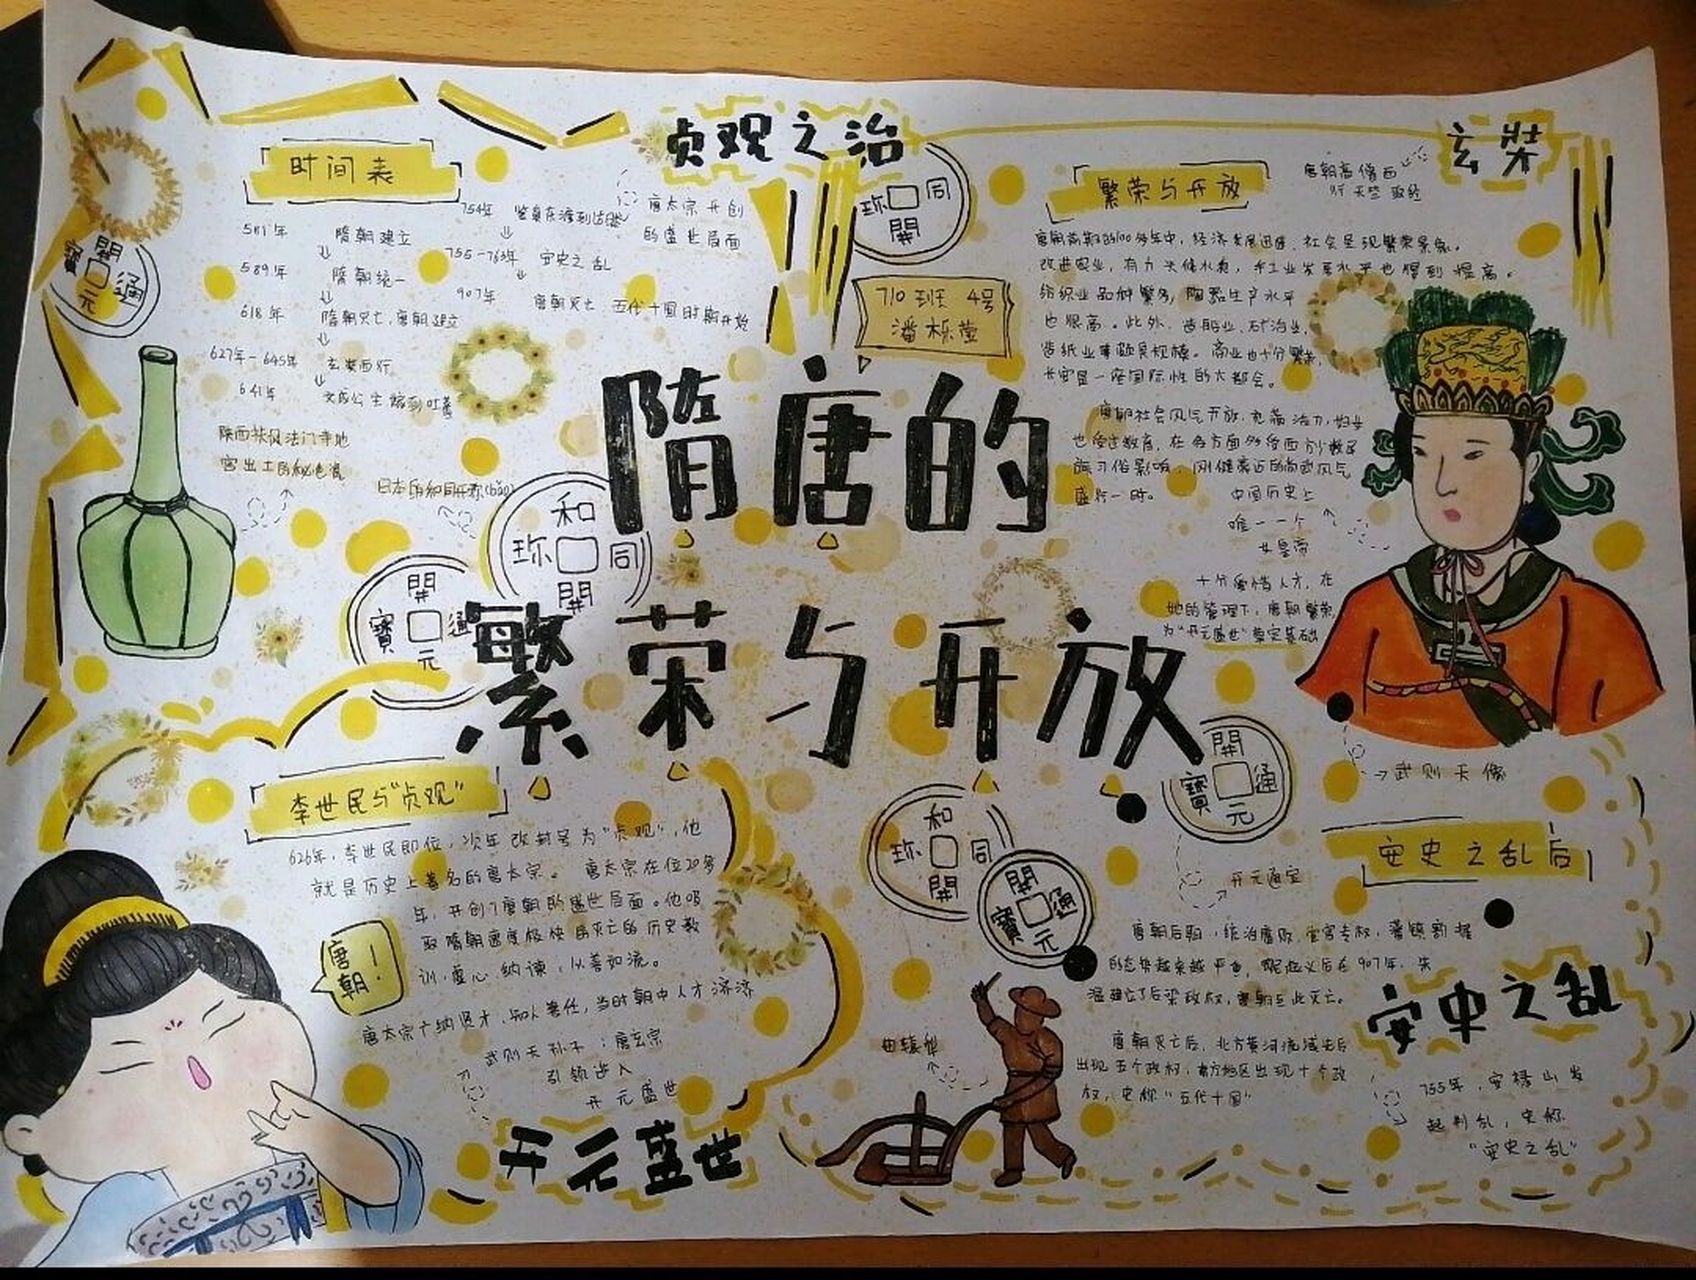 贞观之治
玄奘
时间表
581年 隋朝建立
589年 隋朝统一
618年 隋朝灭亡,唐朝建立
627年-645年 玄奘西行
641年 文成公主嫁到吐蕃
754年 鉴真东渡到达
755-763年 安史之乱
907年 唐朝灭亡 五代十国时期开始
唐太宗开创
的盛世局面
710班 4号
潘栎莹
唐朝高僧西
行天竺取经
繁荣与开放
唐朝前期的100多年中,经济发展迅速,社会呈现繁荣景象。
改进农业,有力 水利,手工业发展水平也得到提高。
纺织业品种繁多,陶器生产水平
也很高。此外,造船业、矿冶业、
造纸业等颇具规模。商业也十分繁荣,
长安是一座国际性的大都会。
唐朝社会风气开放,充满活力,妇女
也 受教育,在多方面多受西方少数民
族习俗影响,刚健豪迈的尚武风气
盛行一时。
中国历史上
唯一一个
女皇帝
十分爱惜人才,在
她的管理下,唐朝繁荣,
为"开元盛世"奠定基础
陕西扶风法门寺地
宫出土的秘色瓷
日本的和同开珎(bǎo)
隋唐的
繁荣与开放
開元通寶
和同開珎
開元通寶
和同開珎
開元通寶
和同開珎
開元通寶
武则天像
开元通宝
李世民与"贞观"
626年,李世民即位,次年改封号为"贞观",他
就是历史上著名的唐太宗。唐太宗在位20多
年,开创了唐朝的盛世局面。他吸
取隋朝速度极快的灭亡的历史教
训,虚心纳谏,从善如流。
唐太宗广纳贤才,知人善任,当时朝中人才济济
唐朝!
武则天孙子:唐玄宗
引领步入
开元盛世
开元盛世
曲辕犁
安史之乱后
唐朝后期,统治腐败,宦官专权,藩镇割据
的态势越来越严重,起义后在907年,朱
温建立了后梁政权,唐朝至此灭亡。
唐朝灭亡后,北方黄河流域先后
出现五个政权,南方地区出现十个政
权,史称"五代十国"
安史之乱
755年,安禄山发
起判乱,史称
"安史之乱"